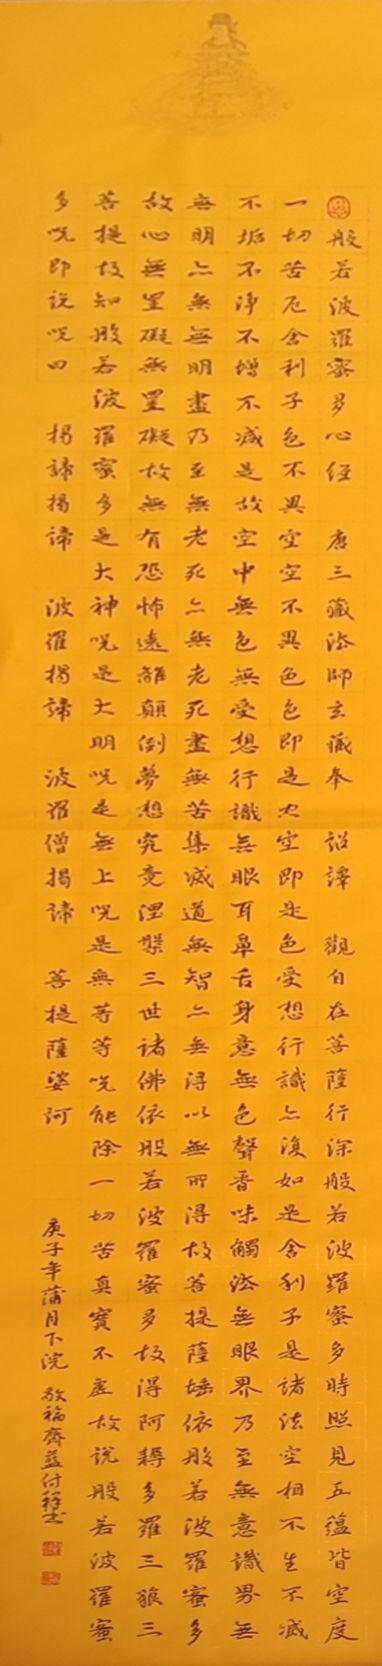 般若波羅蜜多心經 唐三藏法師玄奘奉 詔譯 觀自在菩薩行深般若波羅蜜多時照見五蘊皆空度
一切苦厄舍利子色不異空空不異色色即是空空即是色受想行識亦復如是舍利子是諸法空相不生不滅
不垢不淨不增不減是故空中無色無受想行識無眼耳鼻舌身意無色聲香味觸法無眼界乃至無意識界無
無明亦無無明盡乃至無老死亦無老死盡無苦集滅道無智亦無得以無所得故菩提薩埵依般若波羅蜜多
故心無罣礙無罣礙故無有恐怖遠離顛倒夢想究竟涅槃三世諸佛依般若波羅蜜多故得阿耨多羅三藐三
菩提故知般若波羅蜜多是大神咒是大明咒是無上咒是無等等咒能除一切苦真實不虛故說般若波羅蜜
多咒即說咒曰 揭諦揭諦 波羅揭諦 波羅僧揭諦 菩提薩婆訶
庚子年蒲月下浣 敬福齋藍付祥書